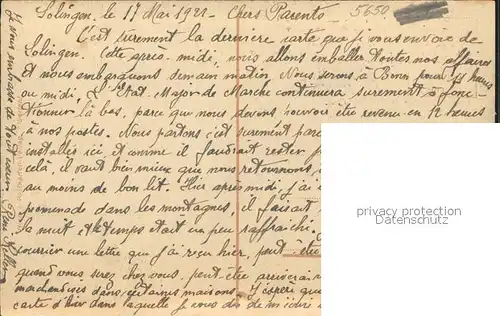 Solingen, le 17 Mai 1921 - Chers Parents 5650
C'est surement la dernière carte que je vous envoie de
Solingen. Cette après-midi, nous allons emballer toutes nos affaires
et nous embarquons demain matin. Nous serons à Bonn pour 11 heures
ou midi. L'Etat-Major de Marche continuera surement à fonc-
tionner là bas, parce que nous devons pouvoir être revenu en 12 heures
à nos postes. Nous partons c'est surement parce
installés ici et comme il faudrait rester
cela, il vaut bien mieux que nous retournons,
au moins de bon lit. Hier après midi, j'ai
promenade dans les montagnes, il faisait
la nuit et le temps était un peu raffraichi.
courrier un lettre que j'ai reçu hier, peut-être
quand vous serez chez vous, peut-être
marchandises dans certaines maisons. J'espère que
carte d'hier dans laquelle je vous dis de
Je vous embrasse de tout cœur
privacy protection
www.ansichtskarten-center.de